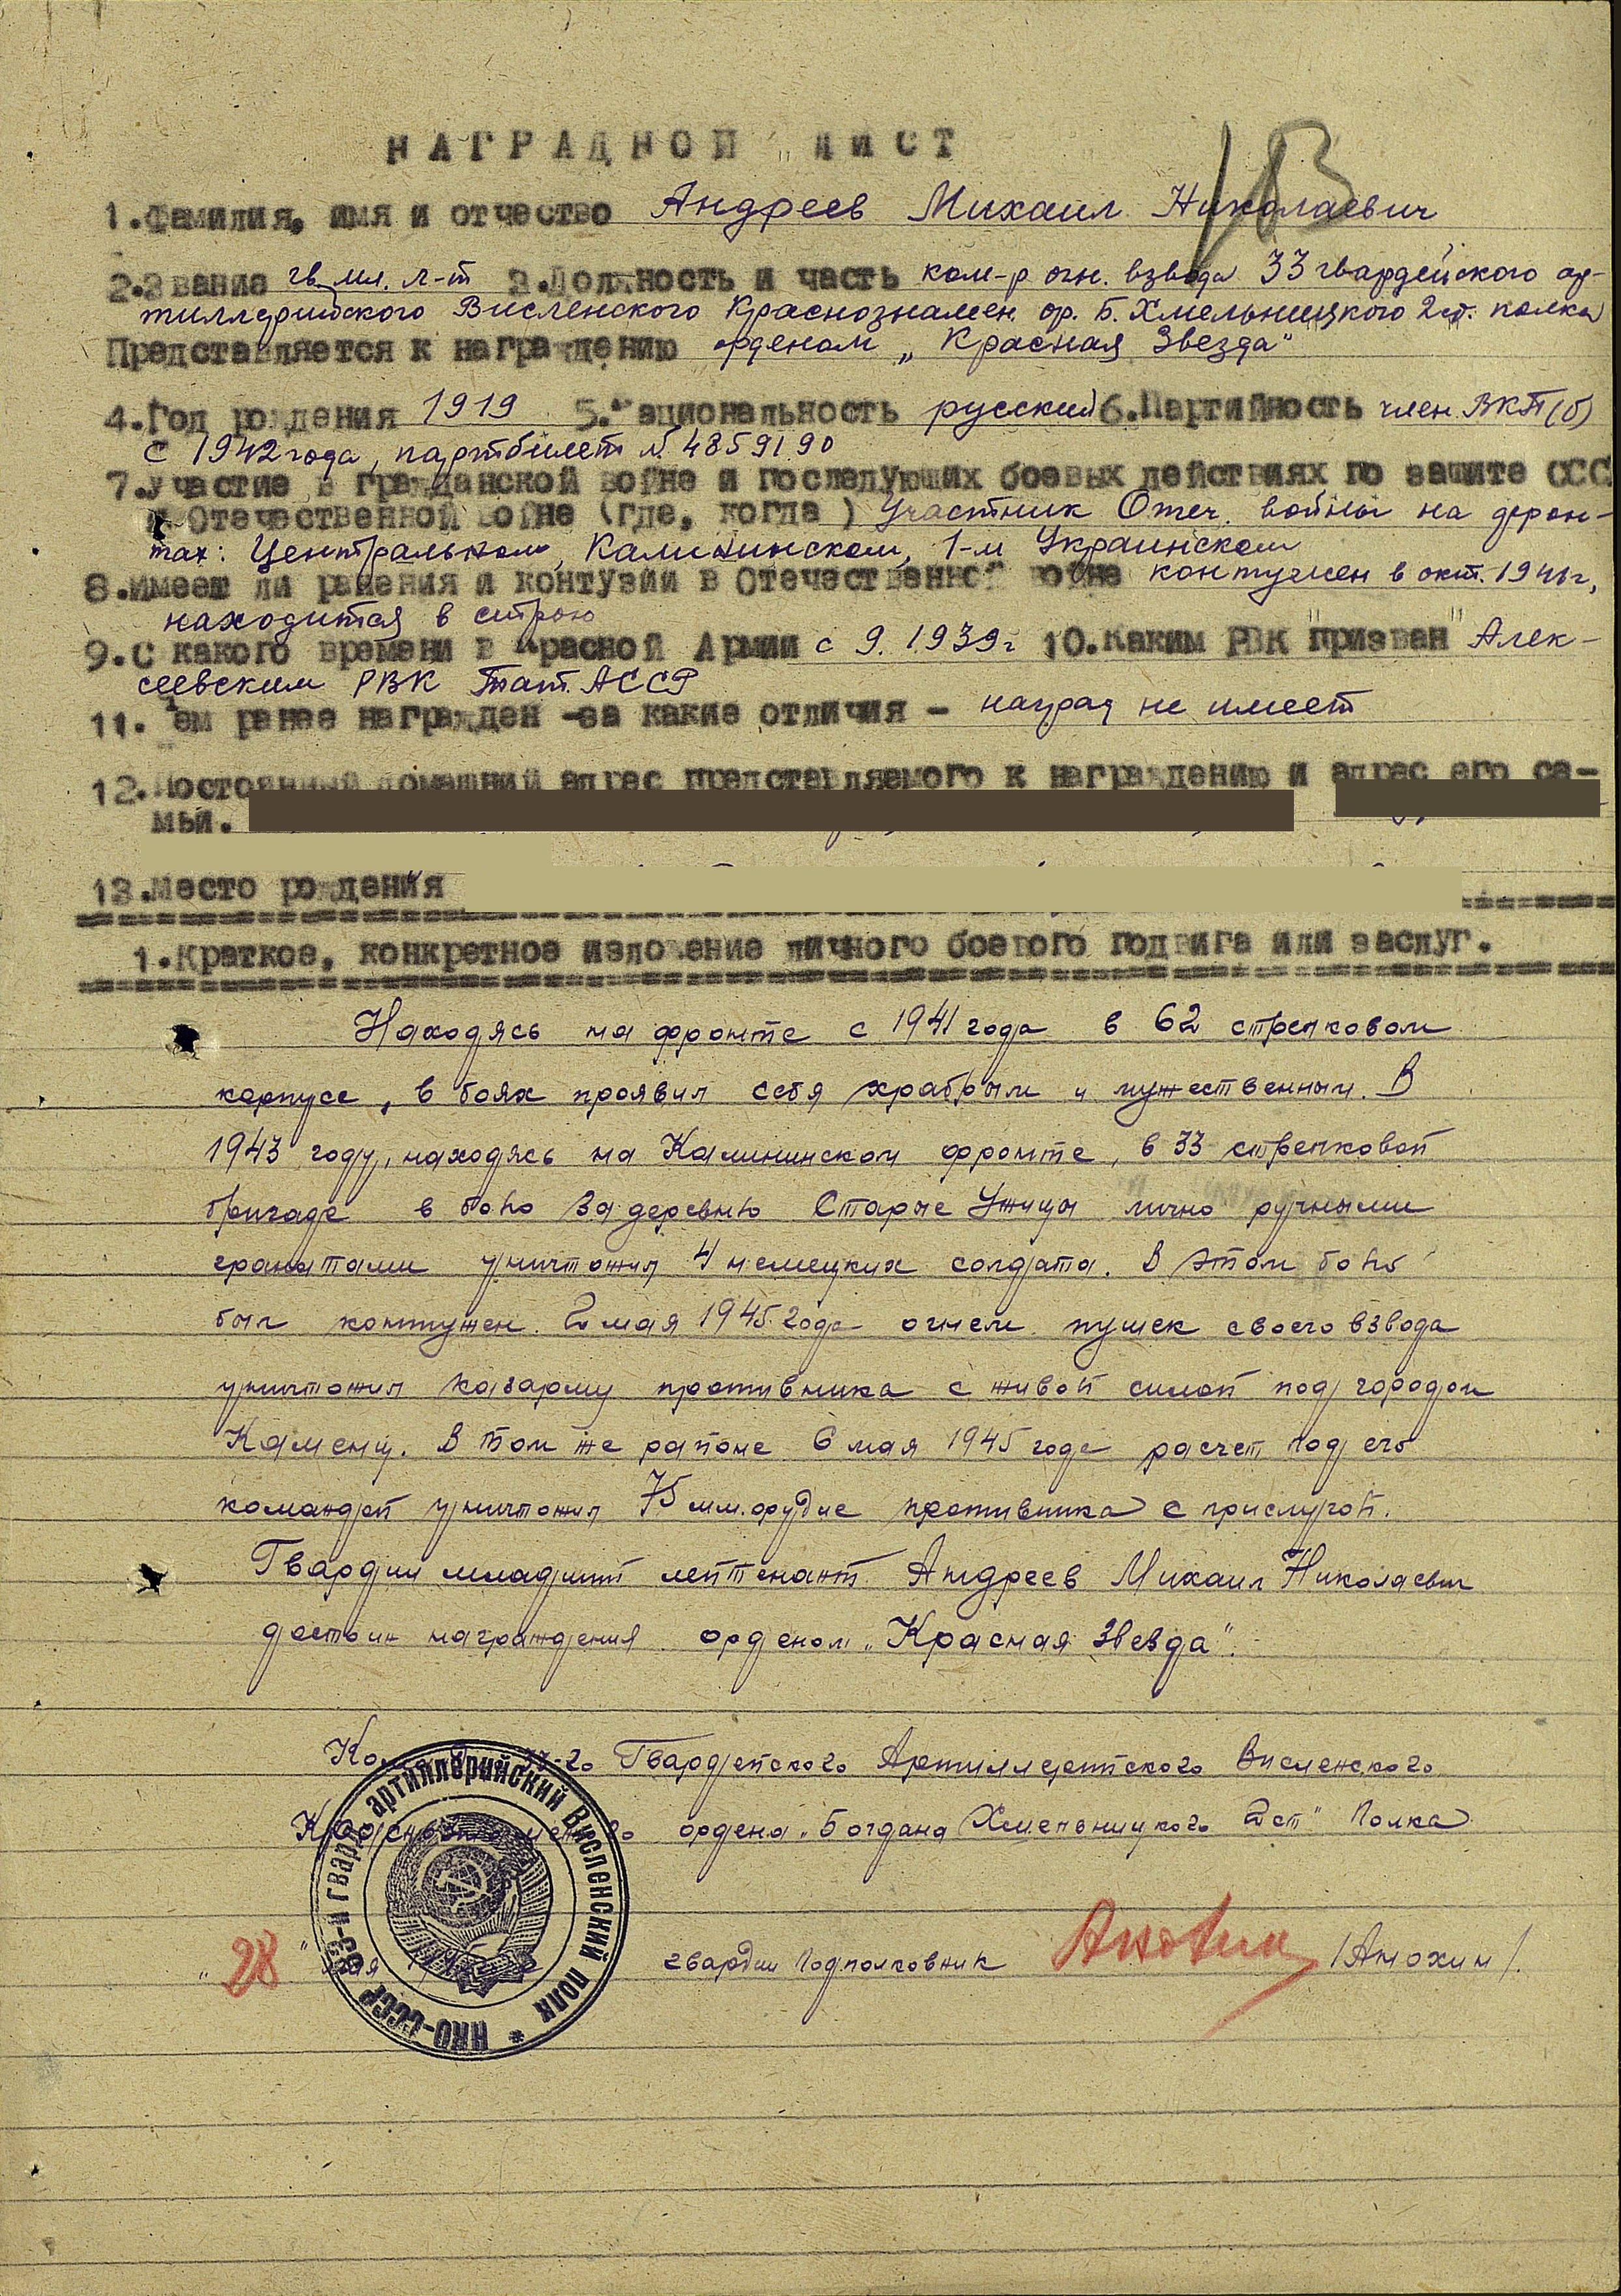 183
НАГРАДНОЙ ЛИСТ
1.Фамилия, имя и отчество Андреев Михаил Николаевич
2.Звание гв. мл. л-т 3.Должность и часть ком-р огн. взвода 33 гвардейского ар-
тиллерийского Висленского Краснознамен. ор. Б. Хмельницкого 2 ст. полка
Представляется к награждению орденом „Красная Звезда"
4.Год рождения 1919 5.Национальность русский 6.Партийность член ВКП(б)
с 1942 года, партбилет № 4859190
7.Участие в гражданской войне и последующих боевых действиях по защите СССР
и Отечественной войне (где, когда) Участник Отеч. войны на фрон-
тах: Центральном, Калининском, 1-м Украинском
8.Имеет ли ранения и контузии в Отечественной войне контужен в окт. 1941 г.,
находится в строю
9.С какого времени в Красной Армии с 9.1939 г 10.Каким РВК "призван" Алек-
сеевским РВК Тат. АССР
11.Чем ранее награжден -за какие отличия - наград не имеет
12.Постоянный домашний адрес представляемого к награждению и адрес его се-
мьи.
13.Место рождения
1.Краткое, конкретное изложение личного боевого подвига или заслуг.
Находясь на фронте с 1941 года в 62 стрелковом
корпусе, в боях проявил себя храбрым и мужественным. В
1943 году, находясь на Калининском фронте, в 33 стрелковой
бригаде в бою за деревню Старые Ужицы лично ручными
гранатами уничтожил 4 немецких солдата. В этом бою
был контужен. 2 мая 1945 года огнем пушек своего взвода
уничтожил казарму противника с живой силой под городом
Каменц. В том же районе 6 мая 1945 года расчет под его
командой уничтожил 75 мм. орудие противника с прислугой.
Гвардии младший лейтенант Андреев Михаил Николаевич
достоин награждения орденом „Красная Звезда".
33-го Гвардейского Артиллерийского Висленского
Краснознаменного ордена „Богдана Хмельницкого 2 ст" Полка
33-й гвард. артиллерийский Висленский полк * НКО-СССР
„28" мая гвардии подполковник Анохин /Анохин/.